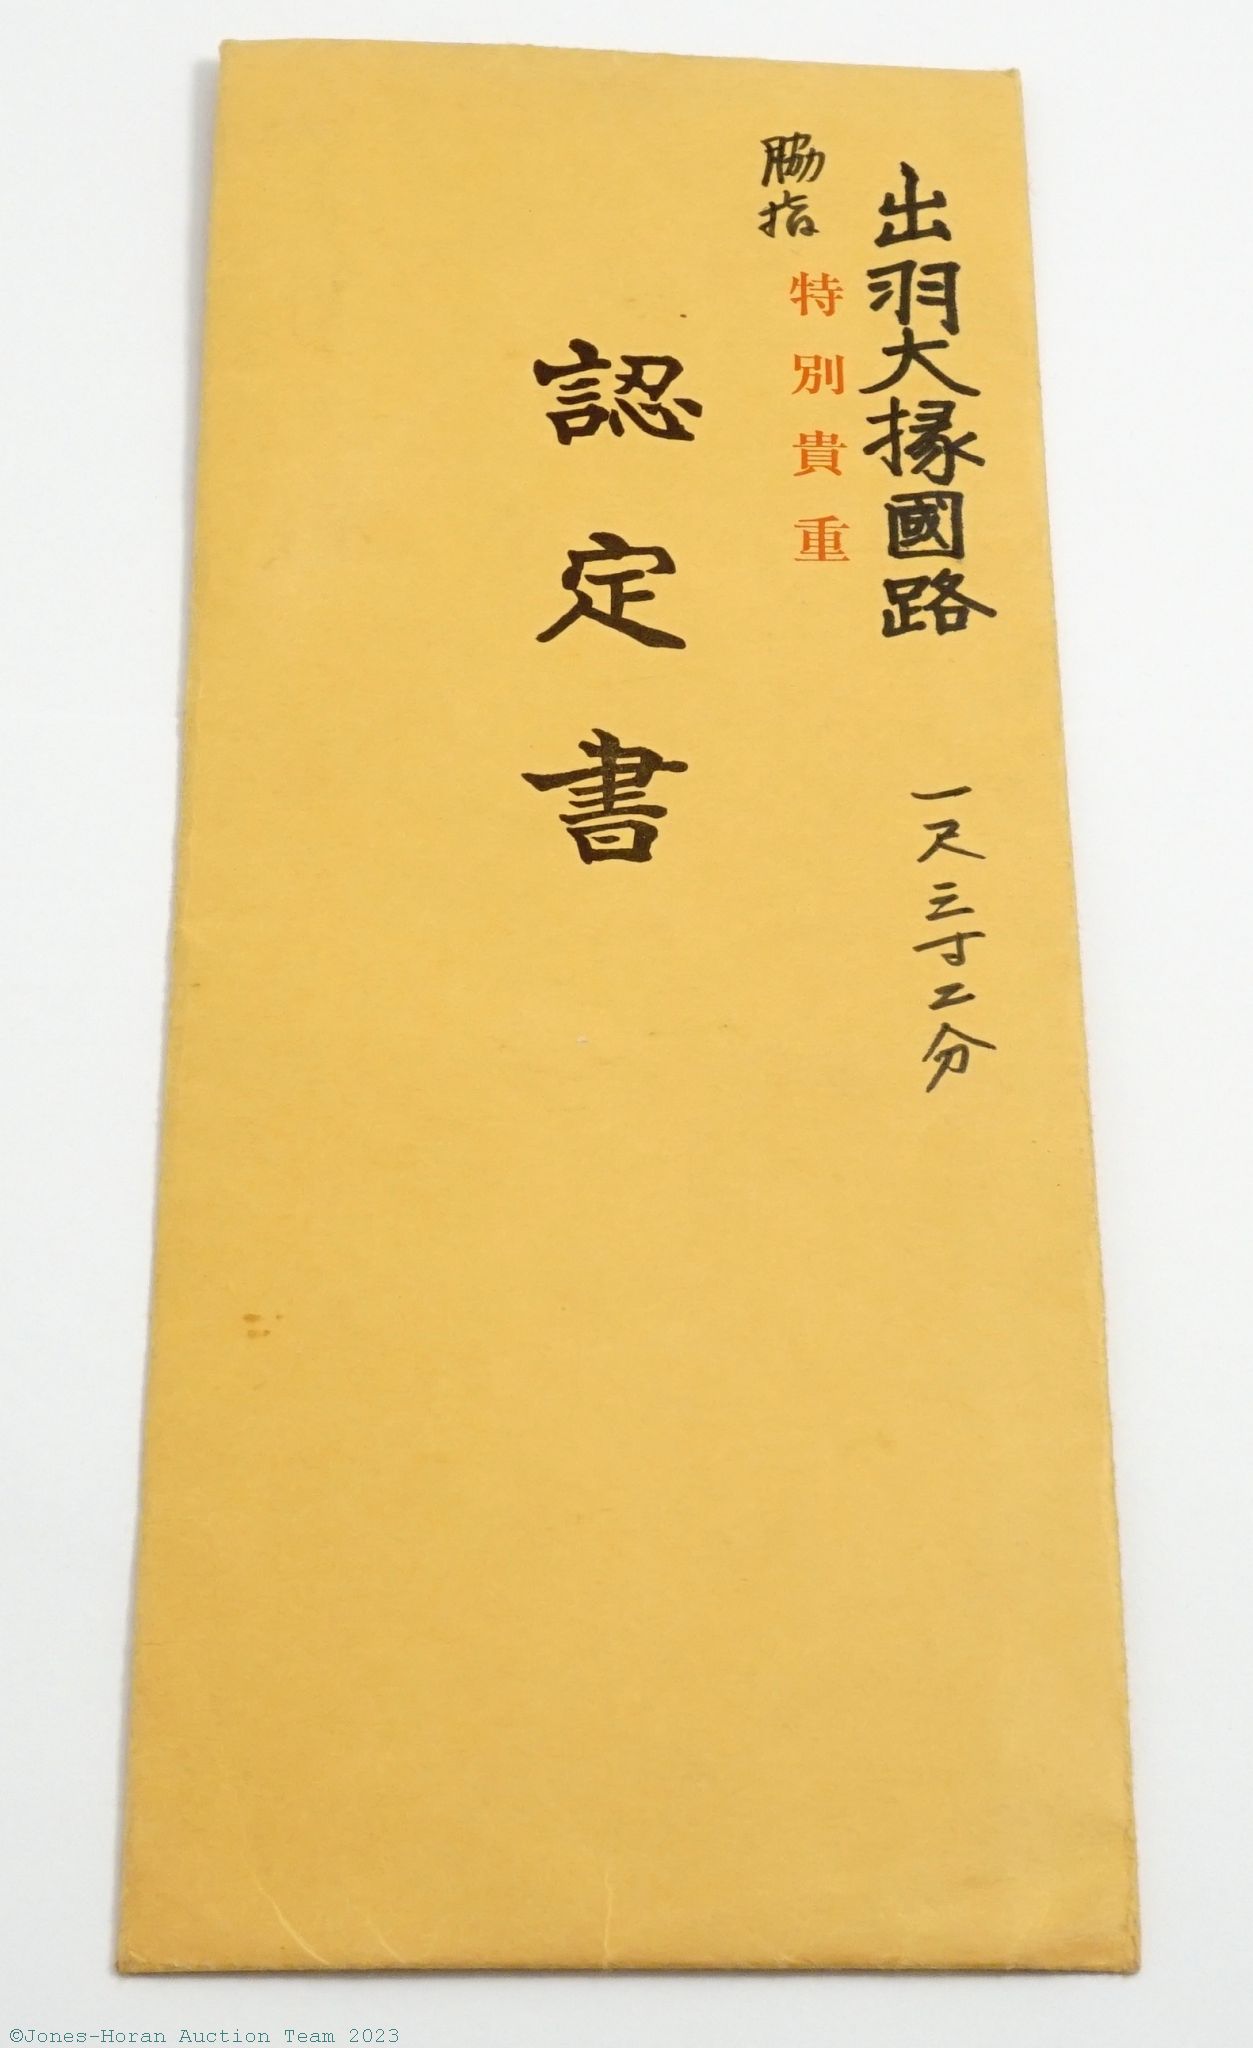 出羽大掾國路 一尺三寸二分
脇指
特別貴重
認定書
©Jones-Horan Auction Team 2023